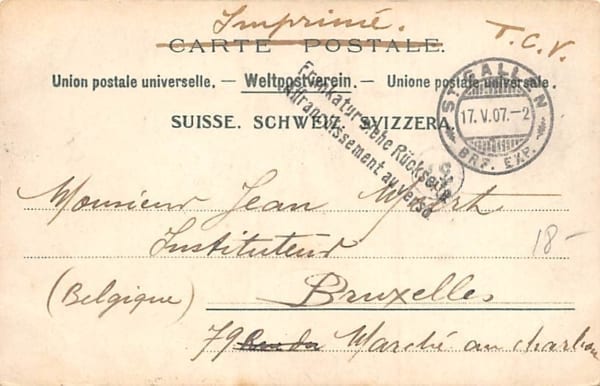 Imprimé.
CARTE POSTALE.
T.C.V.
Union postale universelle. — Weltpostverein. — Unione postale universale.
SUISSE. SCHWEIZ. SVIZZERA.
Frankatur siehe Rückseite
Affranchissement au verso.
ST. GALLEN
17. V. 07. - 2
BRF. EXP.
Monsieur Jean
Instituteur
18-
(Belgique) Bruxelles
79 Rue du Marché au charbon